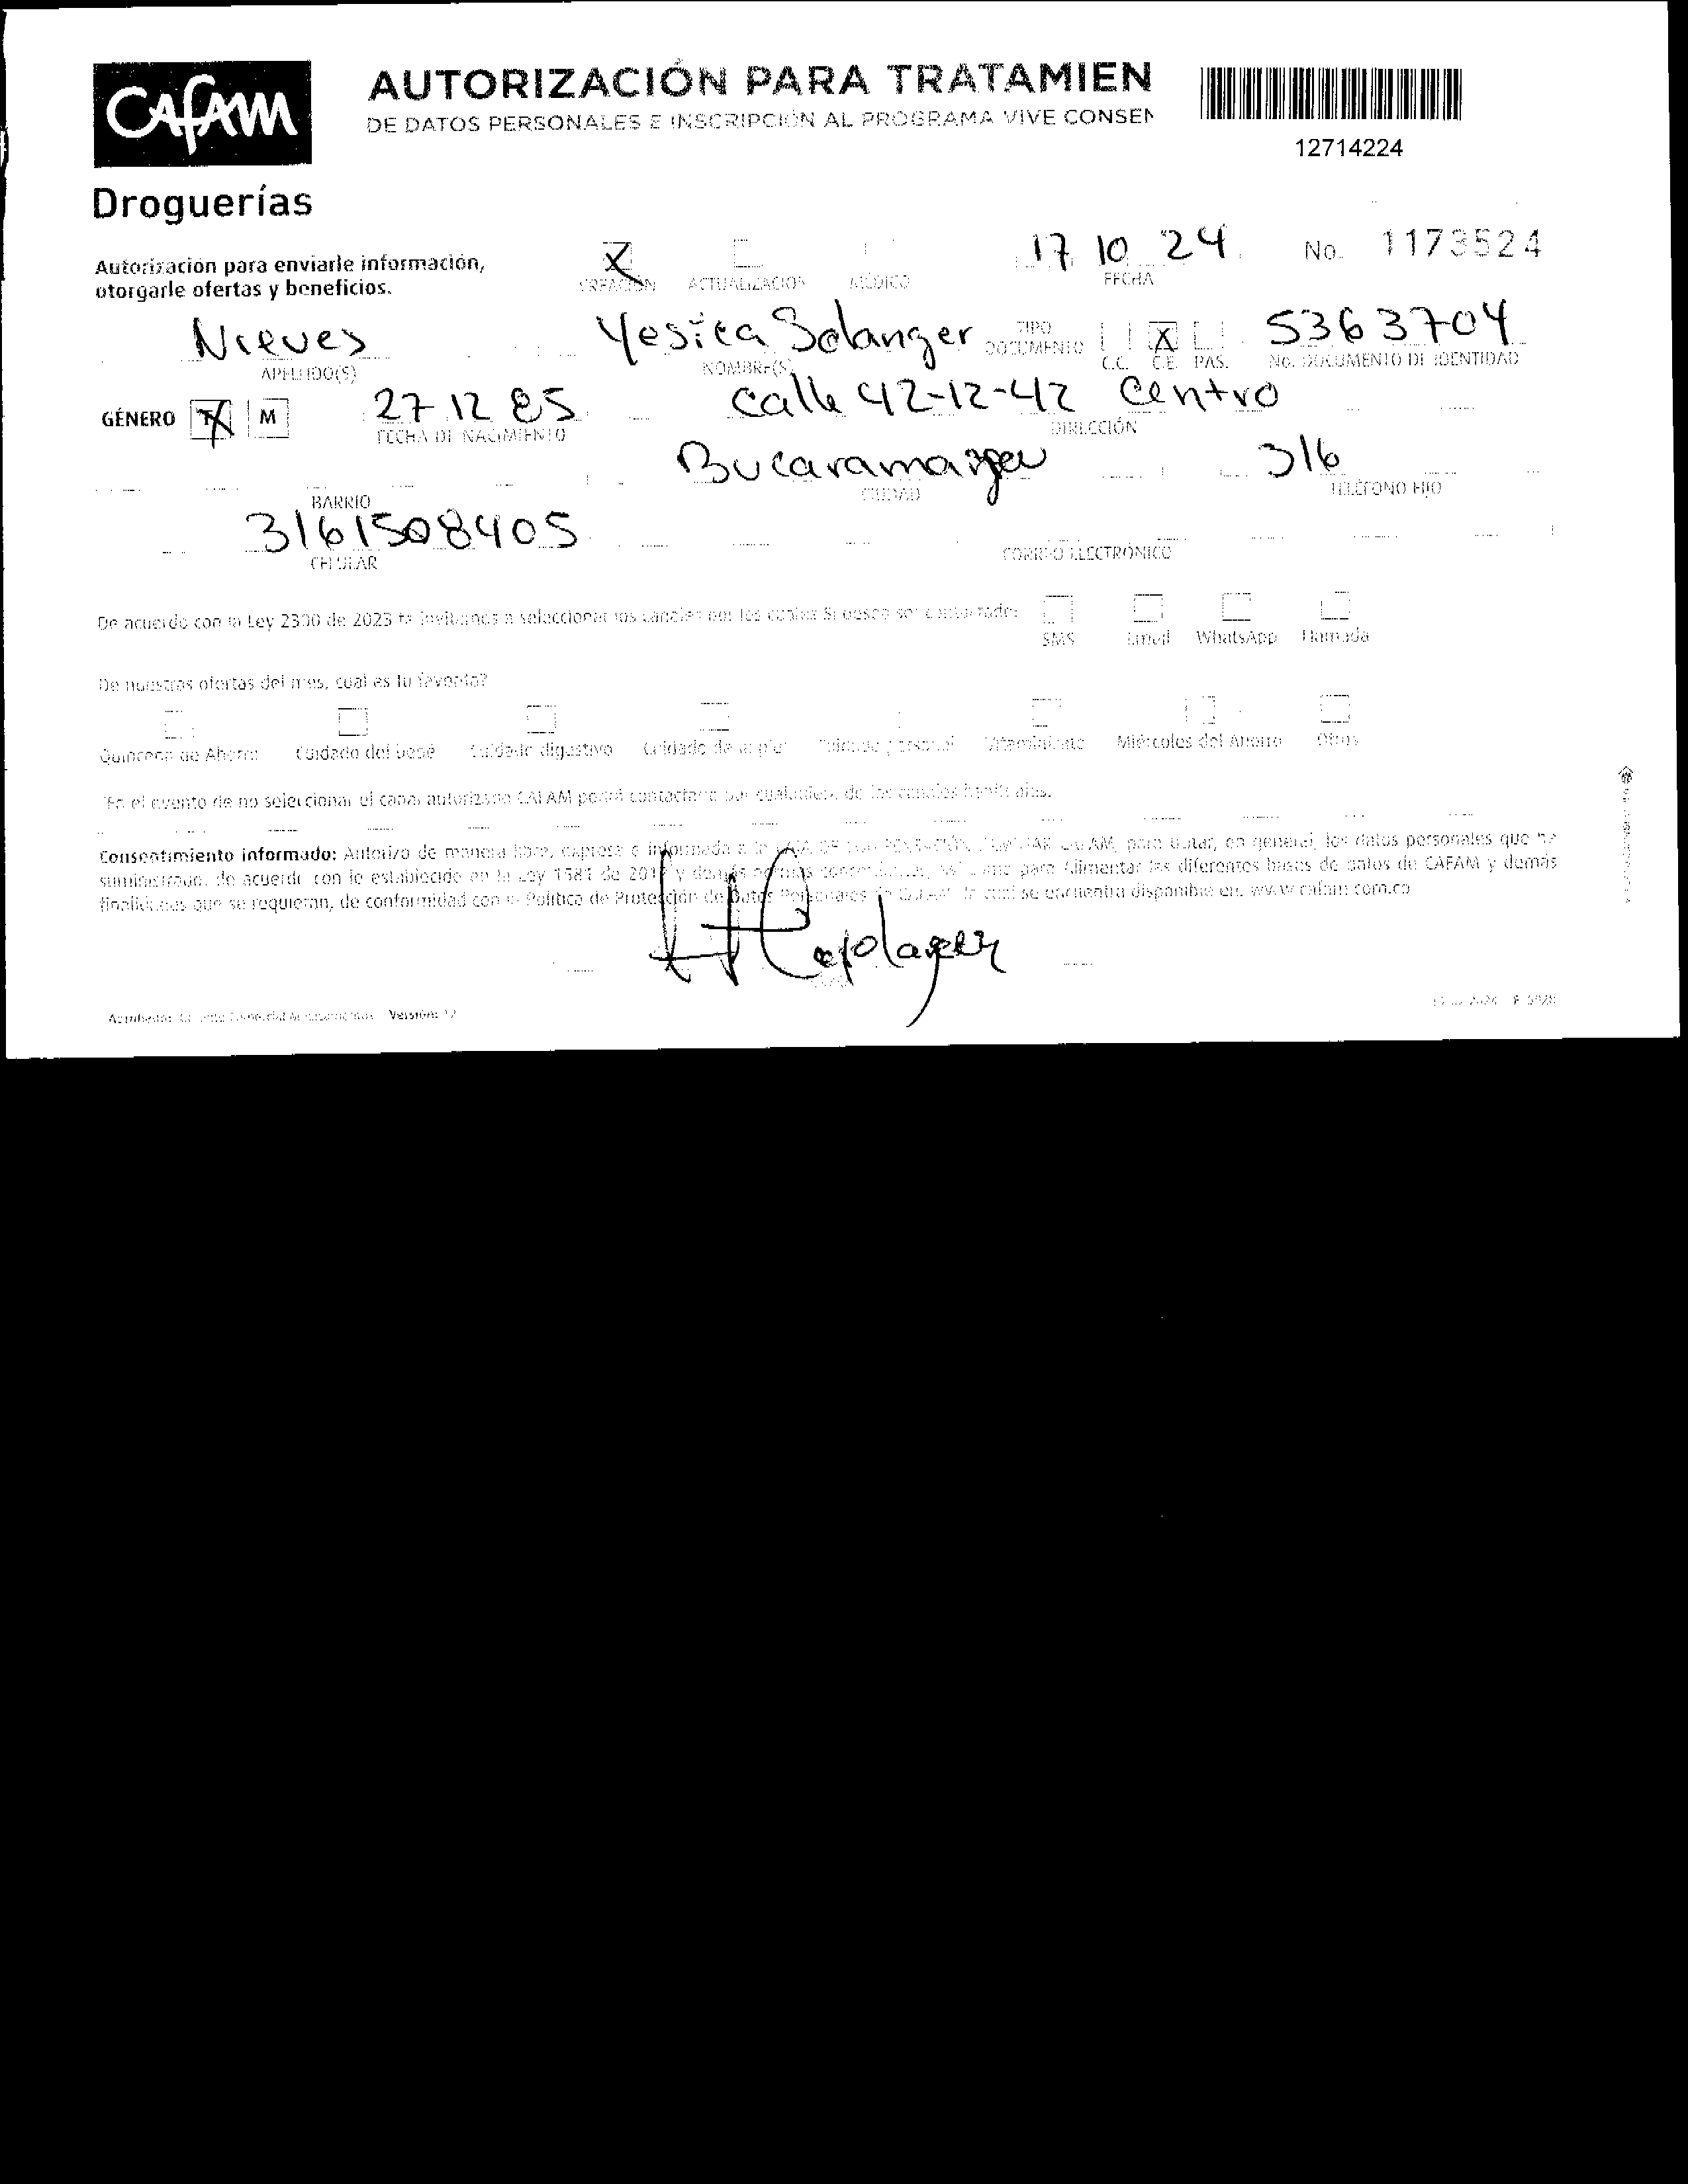 CAFAM
Droguerías
AUTORIZACIÓN PARA TRATAMIEN
DE DATOS PERSONALES E INSCRIPCIÓN AL PROGRAMA VIVE CONSEN
12714224
Autorización para enviarle información,
otorgarle ofertas y beneficios.
X CREACIÓN ACTUALIZACIÓN MÉDICO
17 10 24 No. 1173524
FECHA
Nieves Yesica Solanger TIPO DOCUMENTO X 5363704
APELLIDO(S) NOMBRE(S) C.C. C.E. PAS. No. DOCUMENTO DE IDENTIDAD
GÉNERO F X M 27 12 85 Calle 42-12-42 Centro
FECHA DE NACIMIENTO DIRECCIÓN
Bucaramanga 316
BARRIO CIUDAD TELÉFONO FIJO
3161508405
CELULAR CORREO ELECTRÓNICO
De acuerdo con la Ley 2300 de 2023 te invitamos a seleccionar los canales por los cuales Si desea ser contactado:
SMS Email WhatsApp Llamada
De nuestras ofertas del mes, cual es tu favorita?
Quincena de Ahorro Cuidado del bebé Cuidado digestivo Cuidado de la piel Cuidado personal Vitamínicate Miércoles del Ahorro Otros
*En el evento de no seleccionar el canal autorizado CAFAM podrá contactarte por cualquiera de los canales
Consentimiento informado: Autorizo de manera libre, expresa e informada a la CAJA DE COMPENSACIÓN FAMILIAR CAFAM, para tratar, en general, los datos personales que he
suministrado, de acuerdo con lo establecido en la Ley 1581 de 2012 y demás normas concordantes, así como para alimentar las diferentes bases de datos de CAFAM y demás
finalidades que se requieran, de conformidad con la Política de Protección de Datos Personales de CAFAM la cual se encuentra disponible en: www.cafam.com.co
Versión: 12